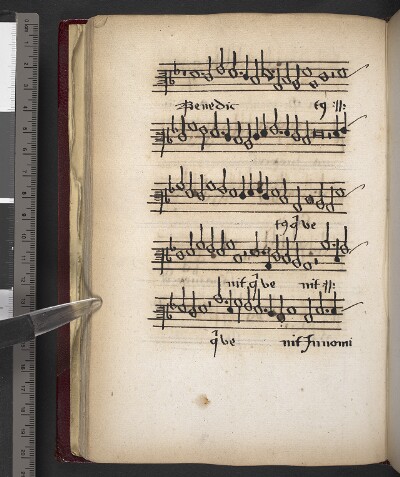 Benedic tꝯ :||:
tꝯ q̃ ve
nit q̃ ve nit :||:
q̃ ve nit In nomi